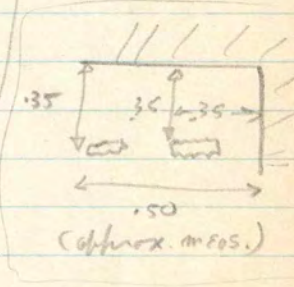 .35 .35 .35
.50
(approx. meas.)